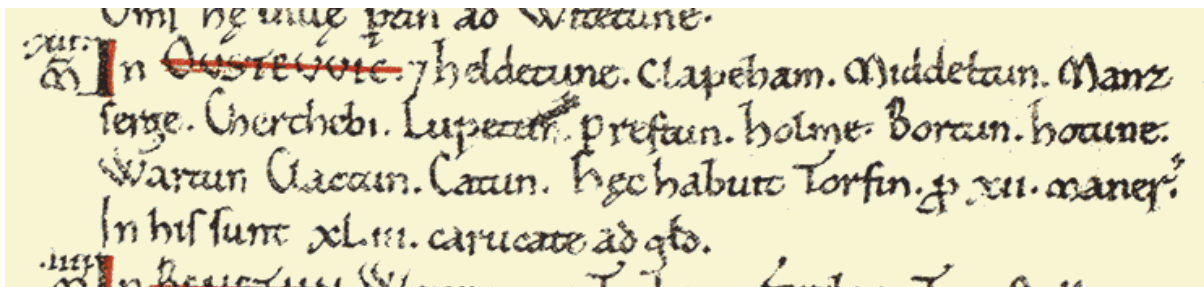 hę uillę ptin ad Witetune.
.xii. M̃ In OUSTEUUIC. ⁊ heldetune. Clapeham. Middeltun. Manz
serge. Cherchebi. Lupetun. Prestun. holme. Bortun. hotune.
Wartun Clactun. Catun. hęc habuit Torfin. ꝓ xii. maneř.
In his sunt xL.iii. carucate ad głd.
.iiii. M̃ In